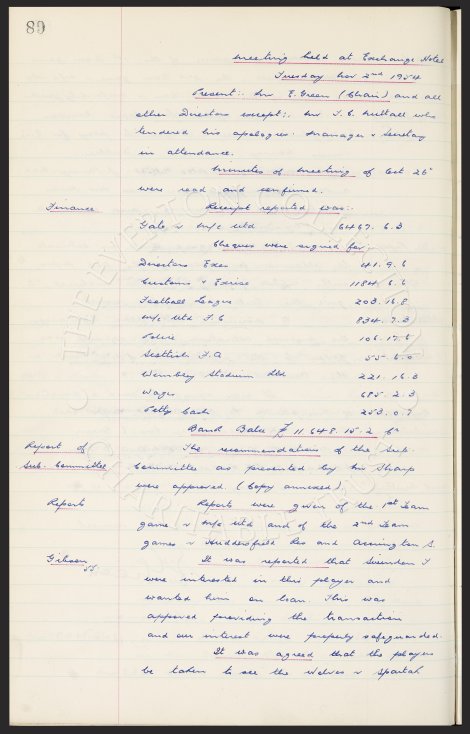 89
Meeting held at Exchange Hotel
Tuesday Nov 2nd 1954
Present:- Mr E. Green (Chair) and all
other Directors except:- Mr T.C. Nuttall who
tendered his apologies. Manager & Secretary
in attendance.
Minutes of Meeting of Oct 26th
were read and confirmed.
Finance Receipt reported was:-
Gate v M/c Utd 6467. 6. 3
Cheques were signed for:-
Directors Exes 41. 9. 6
Customs & Excise 1184. 6. 6
Football League 203. 16. 8
M/c Utd F.C 834. 7. 3
Police 106. 17. 6
Scottish F.A 55. 6. 0
Wembley Stadium Ltd 221. 16. 3
Wages 685. 2. 3
Petty Cash 253. 0. 7
Band Balce £ 11,648. 15. 2 Cr
Report of The recommendations of the Sub.
Sub. Committee Committee as presented by Mr Sharp
were approved. (Copy annexed).
Reports Reports were given of the 1st Team
game v M/c Utd and of the 2nd Team
games v Huddersfield Res and Accrington S.
Gibson It was reported that Swindon T
were interested in this player and
wanted him on loan. This was
approved providing the transaction
and our interest were properly safeguarded.
It was agreed that the players
be taken to see the Wolves v Spartak
THE EVERTON COLLECTION
CHARITABLE TRUST